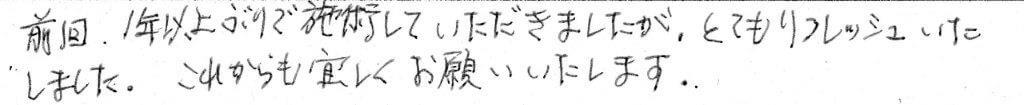 前回、1年以上ぶりで施術していただきましたが、とてもリフレッシュいた
しました。これからも宜しくお願いいたします。